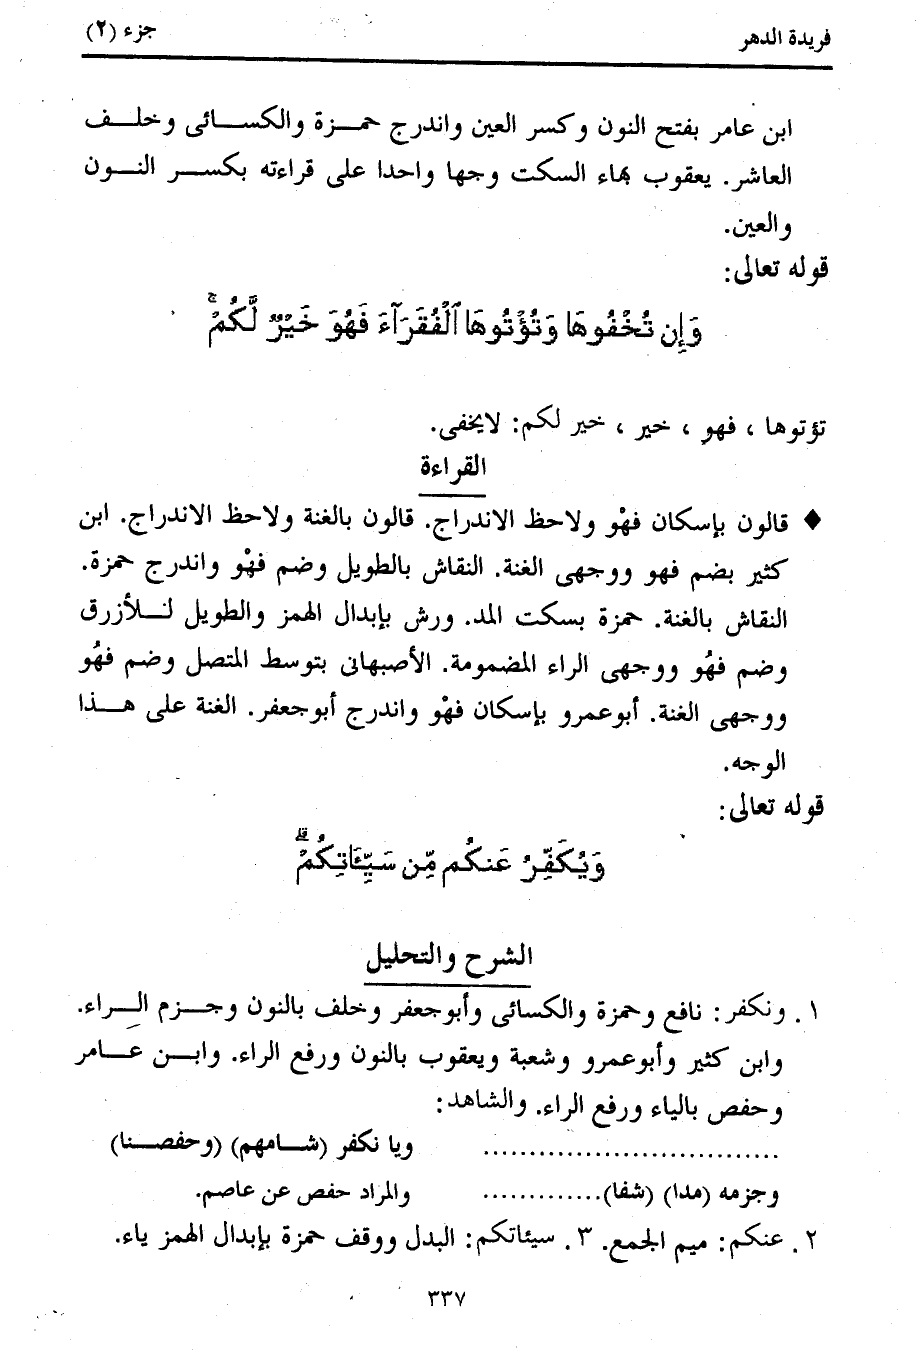 فريدة الدهر جزء (٢)
ابن عامر بفتح النون وكسر العين واندرج حمـزة والكسـائى وخلـف
العاشر. يعقوب بهاء السكت وجها واحدا على قراءته بكسـر النـون
والعين.
قوله تعالى:
وَإِن تُخْفُوهَا وَتُؤْتُوهَا ٱلْفُقَرَآءَ فَهُوَ خَيْرٌ لَّكُمْ ۚ
تؤتوها ، فهو ، خير ، خير لكم: لايخفى.
القراءة
♦ قالون بإسكان فهْو ولاحظ الاندراج. قالون بالغنة ولاحظ الاندراج. ابن
كثير بضم فهو ووجهى الغنة. النقاش بالطويل وضم فهُو واندرج حمزة.
النقاش بالغنة. حمزة بسكت المد. ورش بإبدال الهمز والطويل لـلأزرق
وضم فهُو ووجهى الراء المضمومة. الأصبهانى بتوسط المتصل وضم فهُو
ووجهى الغنة. أبوعمرو بإسكان فهْو واندرج أبوجعفر. الغنة على هـذا
الوجه.
قوله تعالى:
وَيُكَفِّرُ عَنكُم مِّن سَيِّـَٔاتِكُمْ ۗ
الشرح والتحليل
١. ونكفر: نافع وحمزة والكسائى وأبوجعفر وخلف بالنون وجـزم الـراء.
وابن كثير وأبوعمرو وشعبة ويعقوب بالنون ورفع الراء. وابـن عـامر
وحفص بالياء ورفع الراء. والشاهد:
................................ ويا نكفر (شـامهم) (وحفصـنا)
وجزمه (مدا) (شفا)............. والمراد حفص عن عاصم.
٢. عنكم: ميم الجمع. ٣. سيئاتكم: البدل ووقف حمزة بإبدال الهمز ياء.
٣٣٧